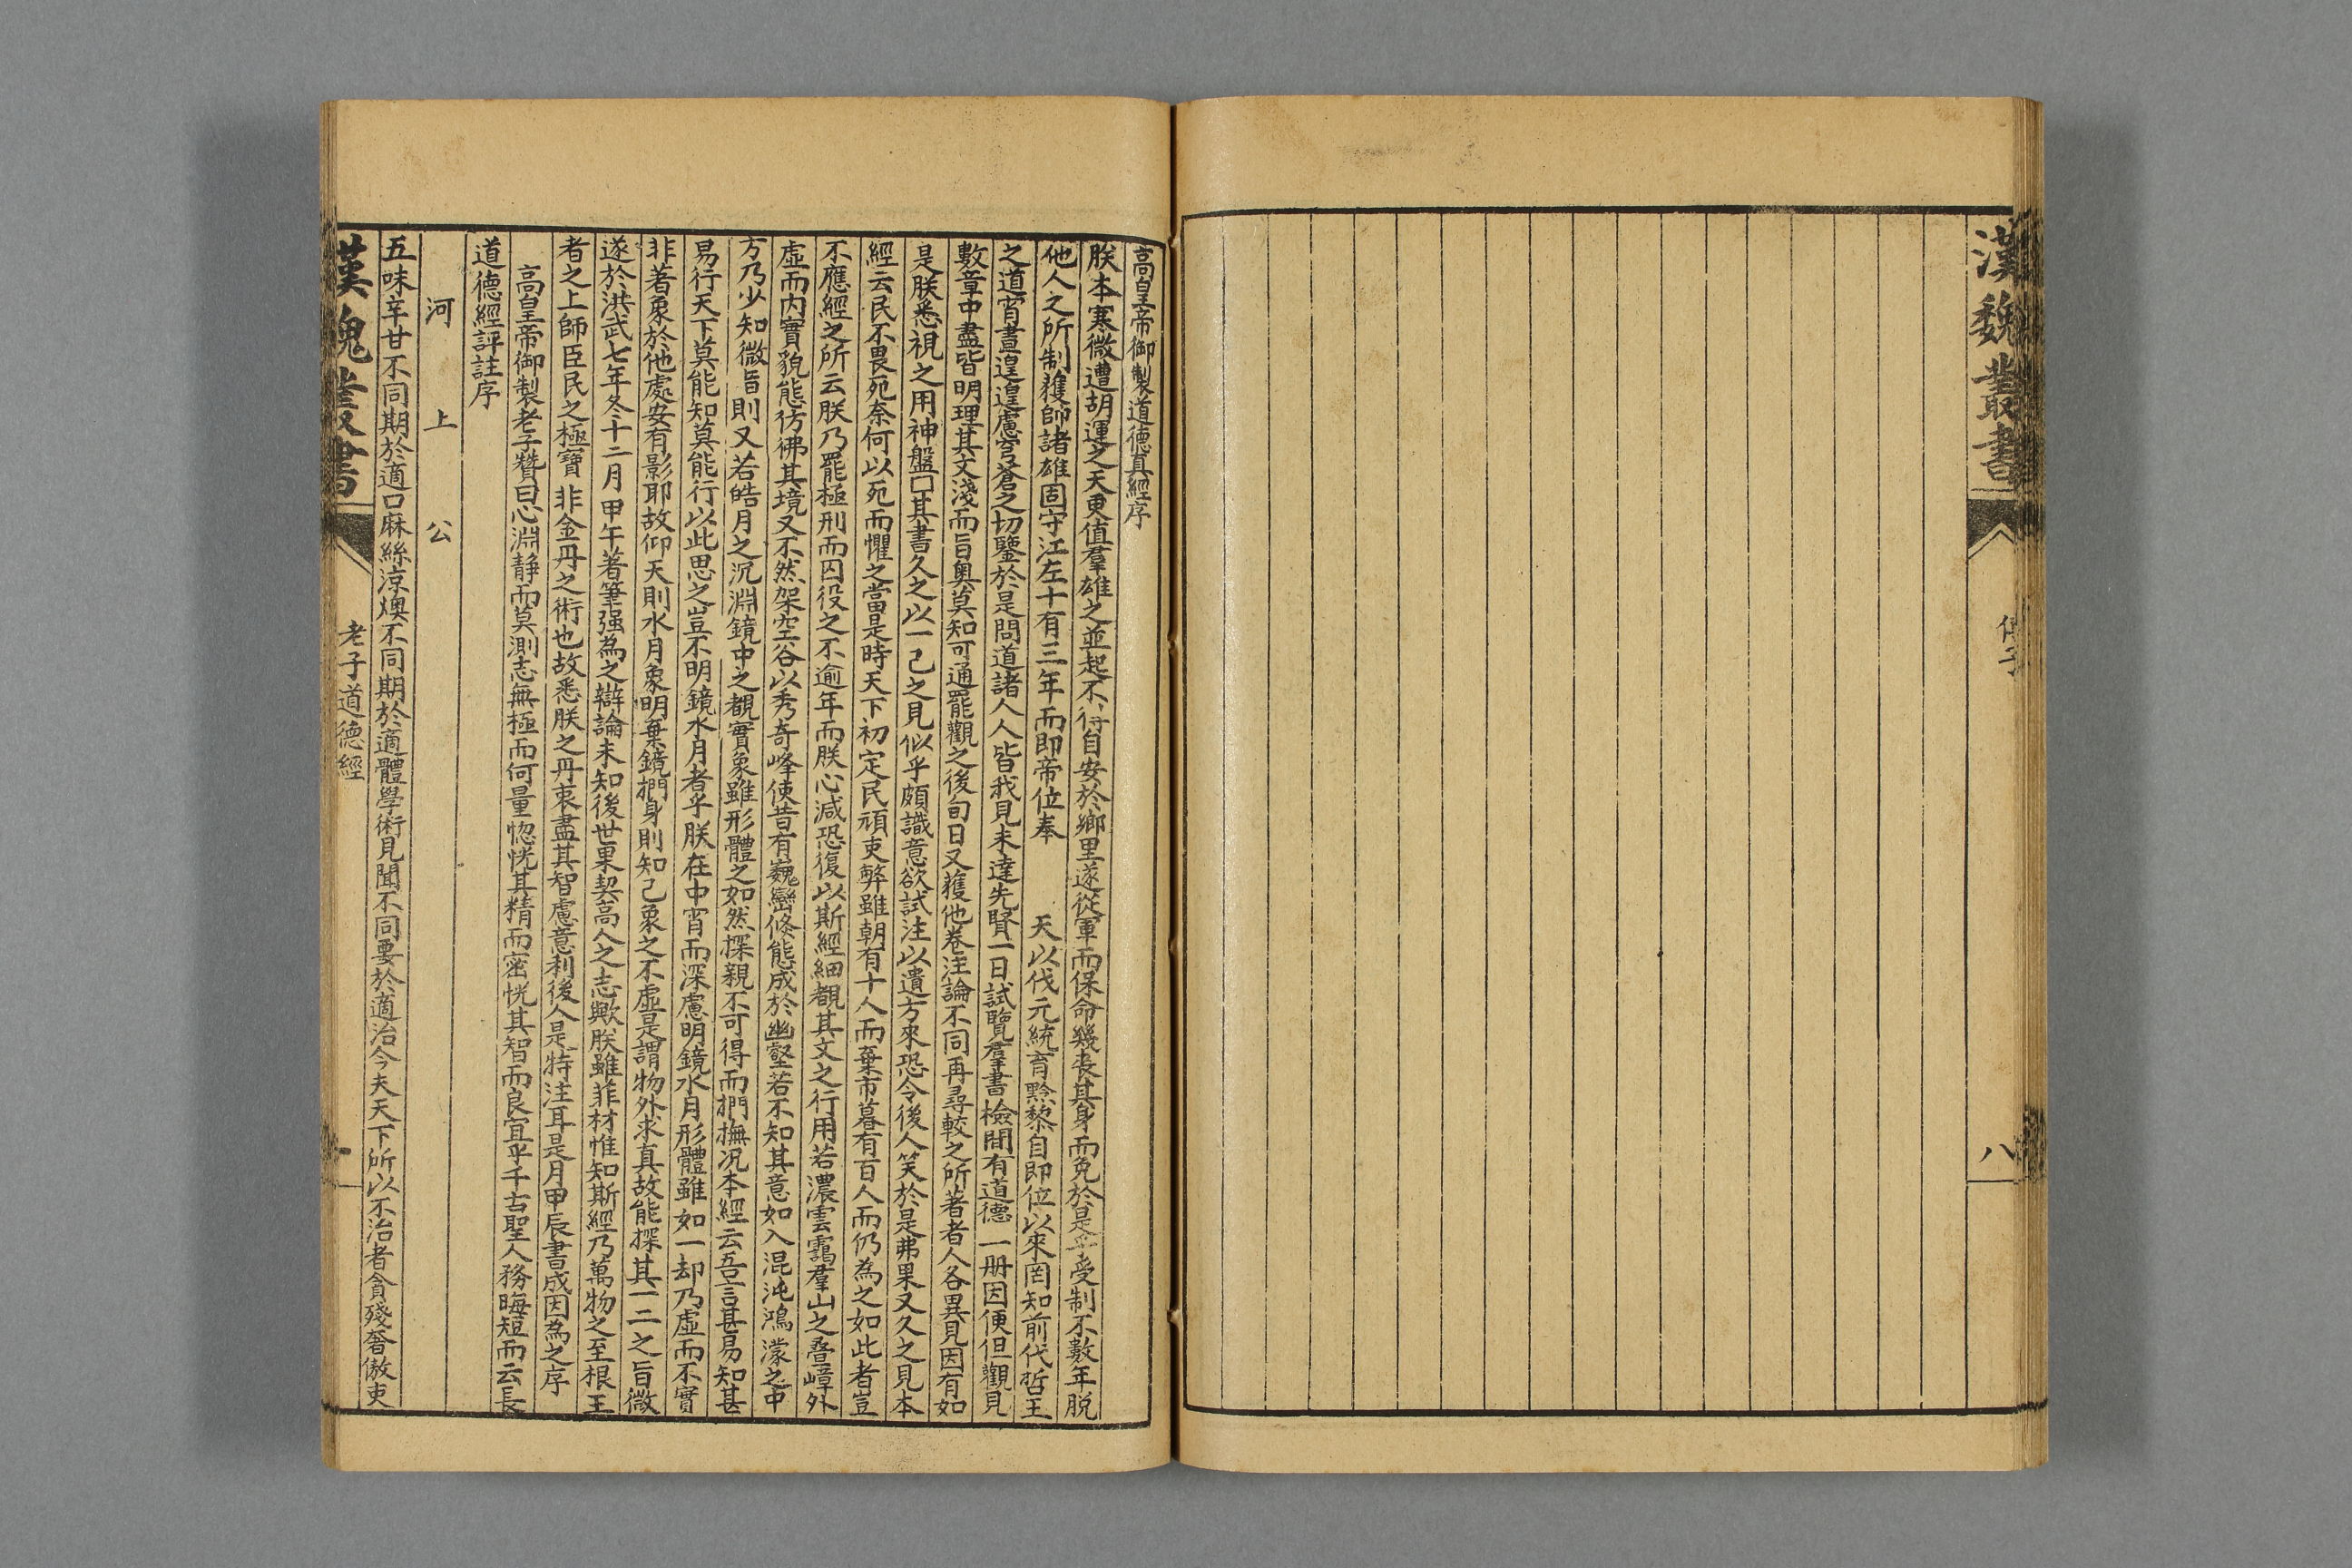 漢魏叢書
八
高皇帝御製道德真經序
朕本寒微遭胡運之天更值羣雄之並起不得自安於鄉里遂從軍而保命幾喪其身而免於是乎受制不數年脱
他人之所制獲帥諸雄固守江左十有三年而即帝位奉　天以伐元統育黔黎自即位以來罔知前代哲王
之道宵晝遑遑慮穹蒼之切鑒於是問道諸人人皆我見未達先賢一日試覽羣書檢間有道德一册因便但觀見
數章中盡皆明理其文淺而旨奥莫知可通罷觀之後旬日又獲他卷注論不同再尋較之所著者人各異見因有如
是朕悉視之用神盤□其書久之以一己之見似乎頗識意欲試注以遺方來恐令後人笑於是弗果又久之見本
經云民不畏死奈何以死而懼之當是時天下初定民頑吏弊雖朝有十人而棄市暮有百人而仍為之如此者豈
不應經之所云朕乃罷極刑而囚役之不逾年而朕心減恐復以斯經細覩其文之行用若濃雲靄羣山之疊嶂外
虛而内實貌態彷彿其境又不然架空谷以秀奇峰使昔有巍巒倏態成於幽壑若不知其意如入混沌鴻濛之中
方乃少知微旨則又若皓月之沉淵鏡中之覩實象雖形體之如然探親不可得而捫撫况本經云吾言甚易知甚
易行天下莫能知莫能行以此思之豈不明鏡水月者乎朕在中宵而深慮明鏡水月形體雖如一却乃虛而不實
非著象於他處安有影耶故仰天則水月象明棄鏡捫身則知己象之不虛是謂物外求真故能探其一二之旨微
遂於洪武七年冬十二月甲午著筆强為之辯論未知後世果契高人之志歟朕雖菲材惟知斯經乃萬物之至根王
者之上師臣民之極寶非金丹之術也故悉朕之丹衷盡其智慮意利後人是特注耳是月甲辰書成因為之序
高皇帝御製老子贊曰心淵靜而莫測志無極而何量惚恍其精而密恍其智而良宜乎千古聖人務晦短而云長
道德經評註序
河上公
五味辛甘不同期於適口麻絲涼燠不同期於適體學術見聞不同要於適治今夫天下所以不治者貪殘奢傲吏
漢魏叢書
老子道德經
一